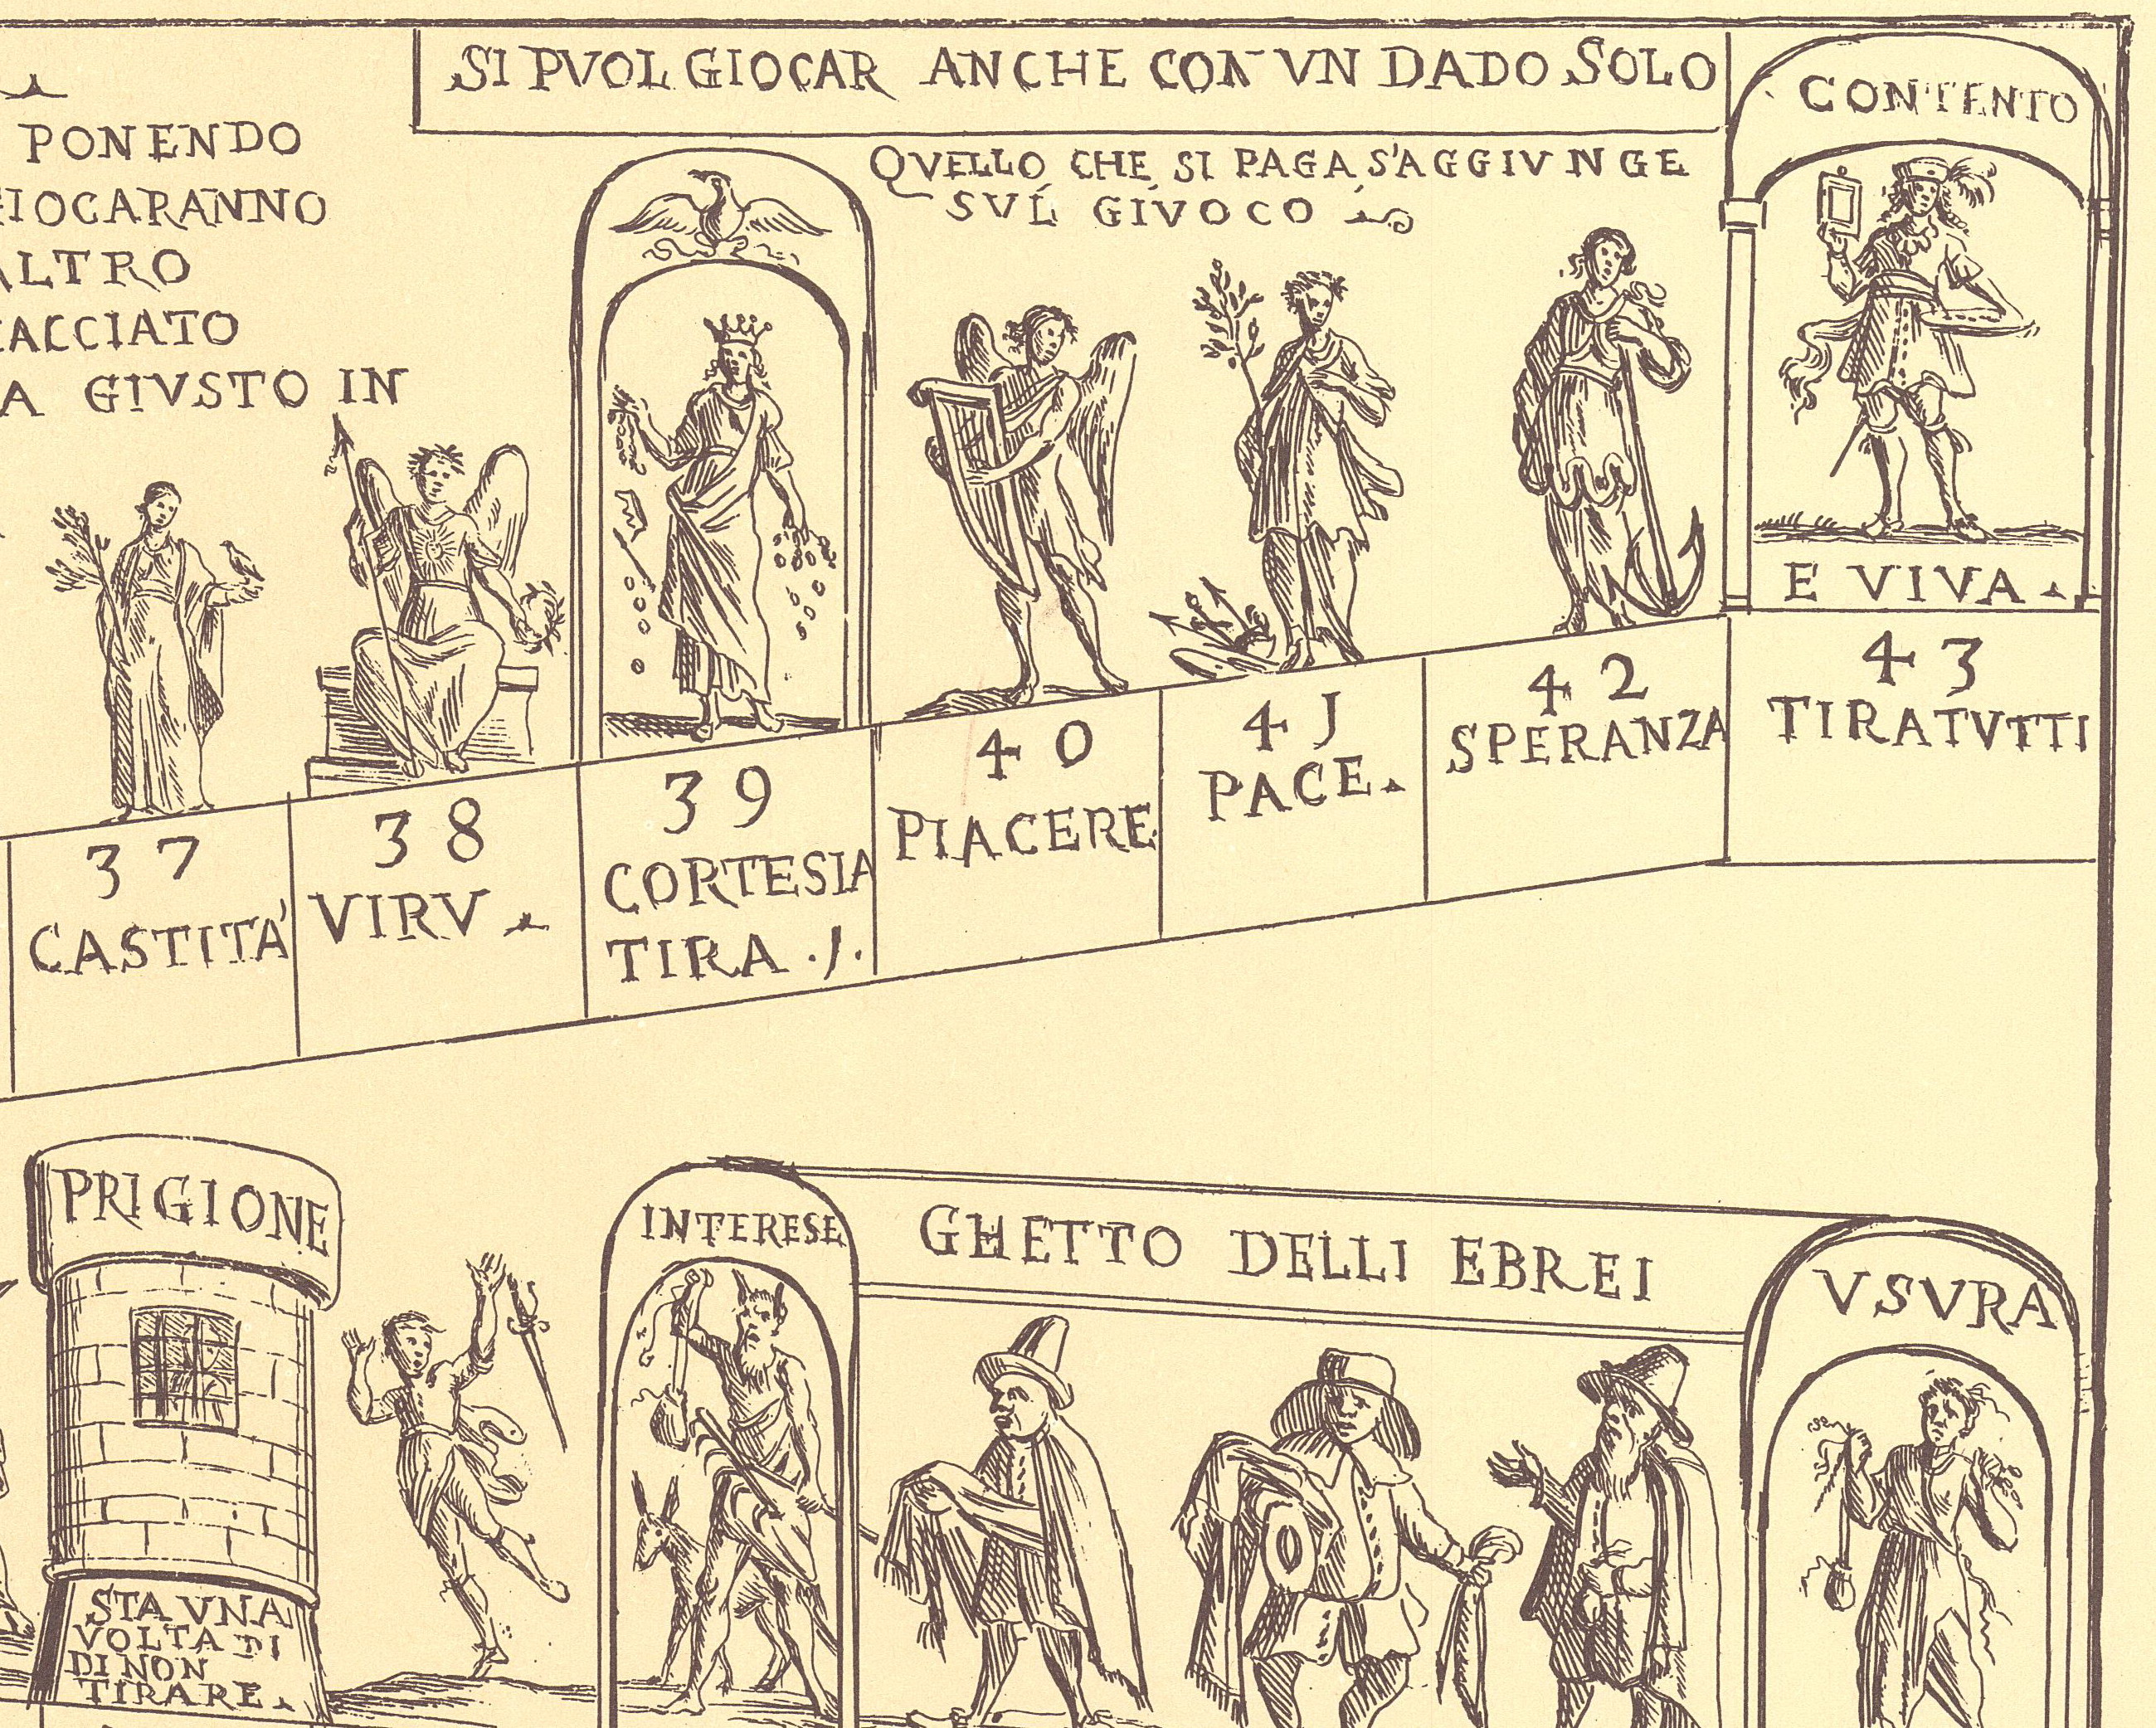 SI PVOL GIOCAR ANCHE CON VN DADO SOLO
PONENDO
GIOCARANNO
ALTRO
CACCIATO
A GIVSTO IN
QVELLO CHE SI PAGA S'AGGIVNGE
SVL GIVOCO
CONTENTO
E VIVA
37
CASTITÀ
38
VIRV
39
CORTESIA
TIRA .J.
40
PIACERE
4J
PACE.
42
SPERANZA
43
TIRATVTTI
PRIGIONE
STA VNA
VOLTA DI
DI NON
TIRARE
INTERESE
GHETTO DELLI EBREI
VSVRA